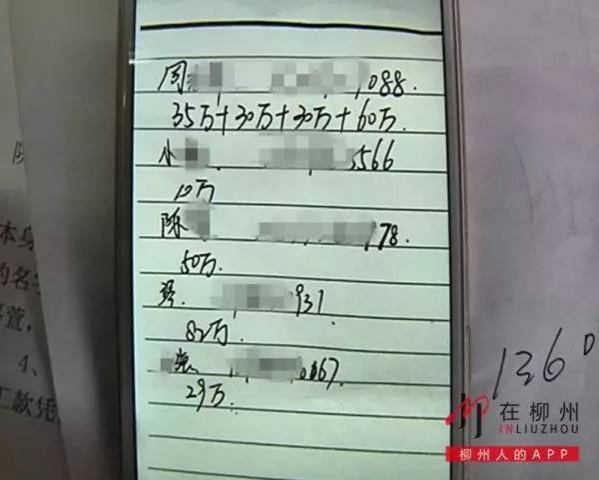 周 088.
35万+30万+30万+60万.
小 566
10万
陈 78.
50万.
931
82万.
667.
29万.
本身
的名
4、
汇款凭
1360
在柳州
INLIUZHOU
柳州人的APP